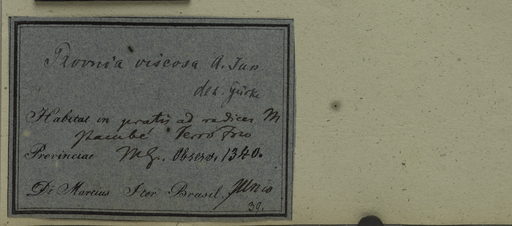 Pavonia viscosa A. Jus
det. Gürke
Habitat in pratis ad radices M
Itambé Serro Frio
Provinciae M G. Observ. 1340.
Dr Martius Iter Brasil. Junio
39.